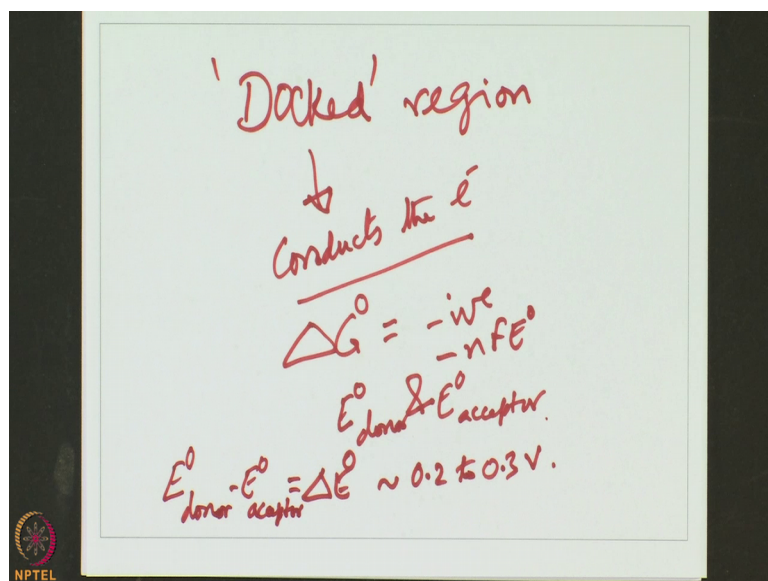 'Docked' region
↓
Conducts the e⁻
ΔG⁰ = -ive
-nFE⁰
E⁰donor & E⁰acceptor.
E⁰donor - E⁰aceptor = ΔE⁰ ~ 0.2 to 0.3 V.
NPTEL